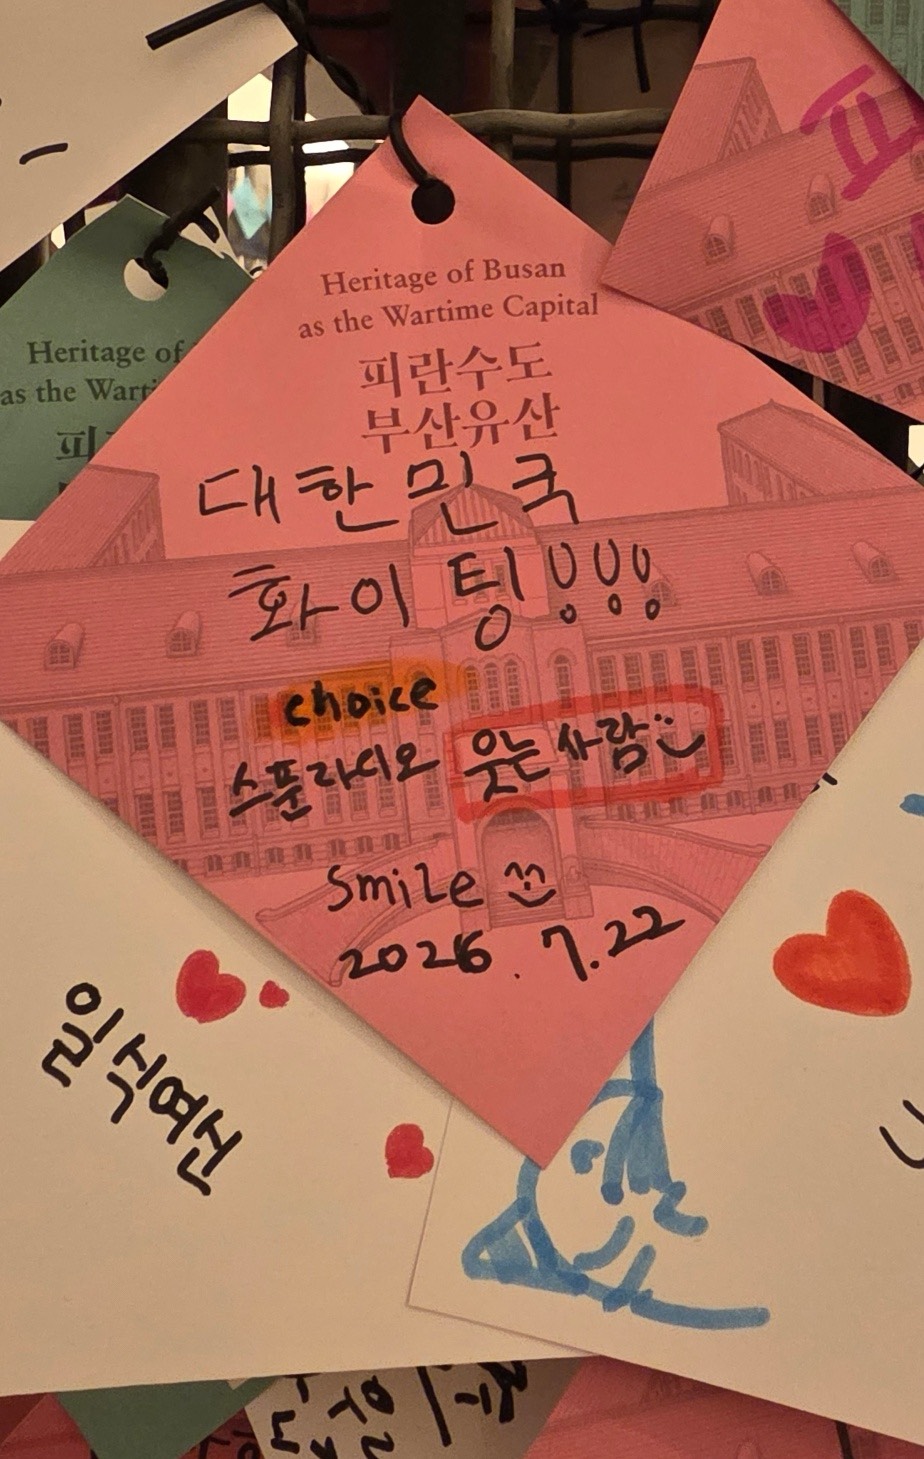 Heritage of Busan
as the Wartime Capital
피란수도
부산유산
대한민국
화이팅!!!
choice
스푼라디오 웃는사람
Smile
2026.7.22
Heritage of
as the Wart
피
피
일석여신